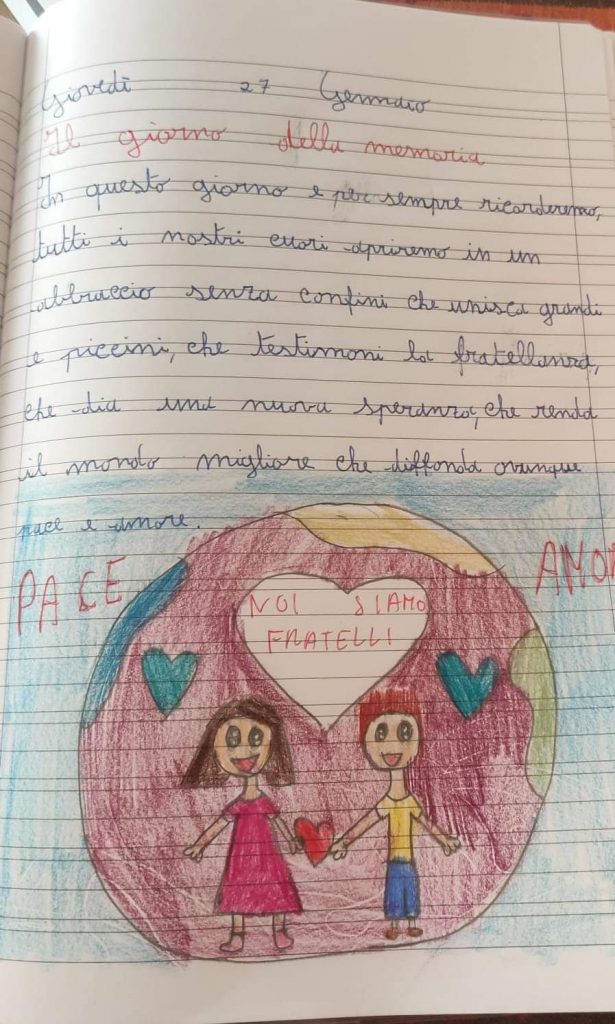 Giovedì 27 Gennaio
Il giorno della memoria
In questo giorno e per sempre ricorderemo,
tutti i nostri cuori apriremo in un
abbraccio senza confini che unisca grandi
e piccini, che testimoni la fratellanza,
che dia una nuova speranza, che renda
il mondo migliore che diffonda ovunque
pace e amore.
PACE
AMOR
NOI SIAMO
FRATELLI